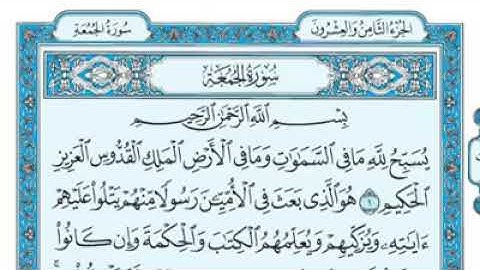 الجزء الثامن والعشرون
سورة الجمعة
سُورَةُ الجُمُعَةِ
بِسْمِ ٱللَّهِ ٱلرَّحْمَٰنِ ٱلرَّحِيمِ
يُسَبِّحُ لِلَّهِ مَا فِى ٱلسَّمَٰوَٰتِ وَمَا فِى ٱلْأَرْضِ ٱلْمَلِكِ ٱلْقُدُّوسِ ٱلْعَزِيزِ
ٱلْحَكِيمِ ١ هُوَ ٱلَّذِى بَعَثَ فِى ٱلْأُمِّيِّـۧنَ رَسُولًا مِّنْهُمْ يَتْلُوا۟ عَلَيْهِمْ
ءَايَٰتِهِۦ وَيُزَكِّيهِمْ وَيُعَلِّمُهُمُ ٱلْكِتَٰبَ وَٱلْحِكْمَةَ وَإِن كَانُوا۟